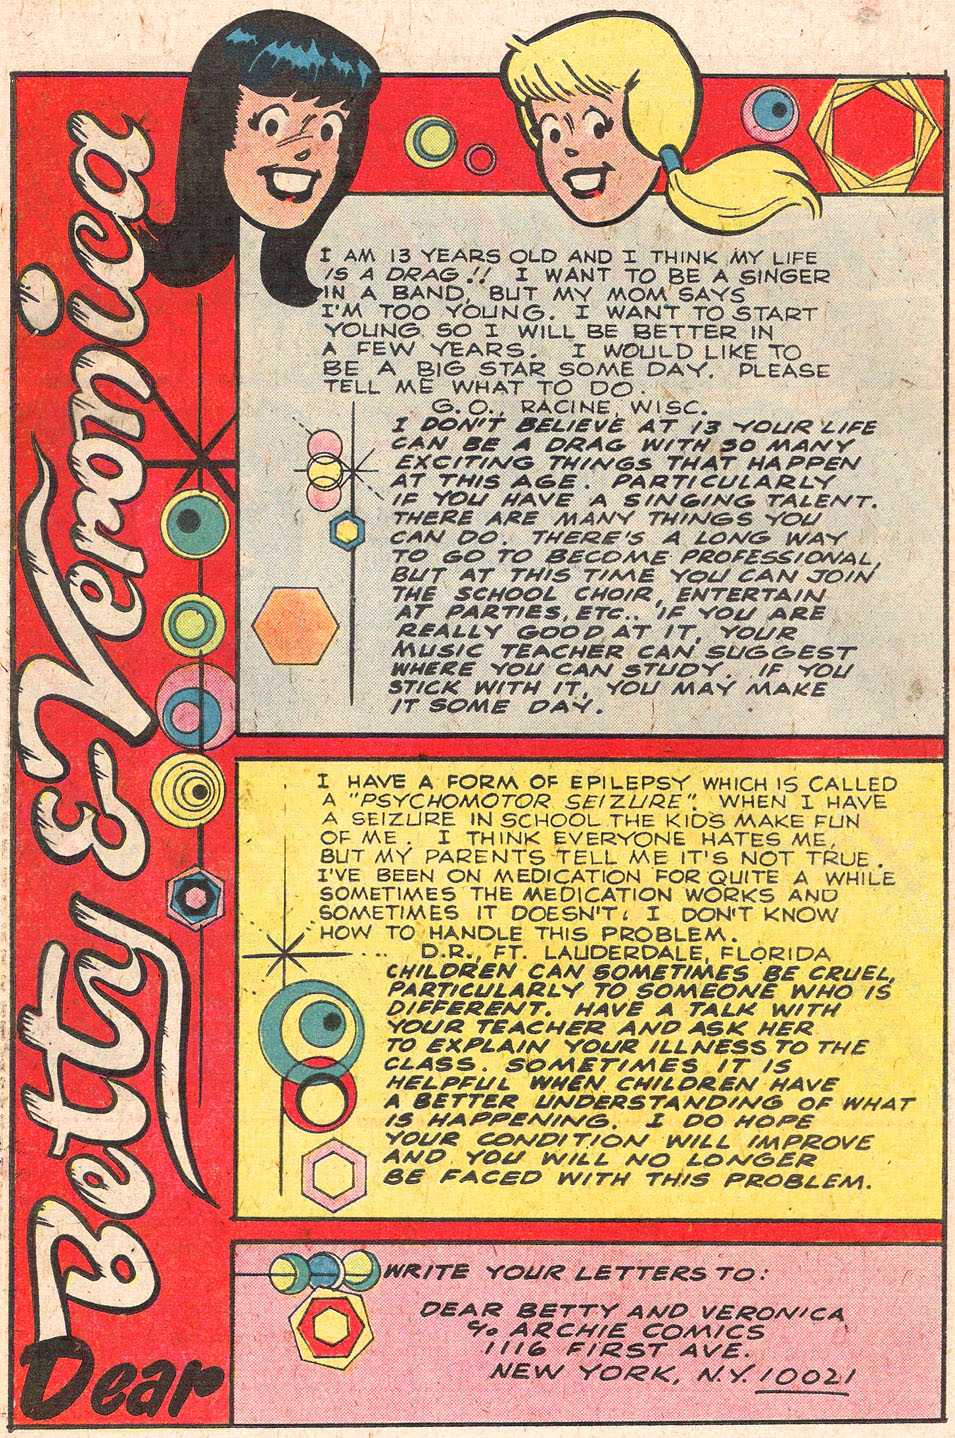 Dear Betty & Veronica
I AM 13 YEARS OLD AND I THINK MY LIFE
IS A DRAG!! I WANT TO BE A SINGER
IN A BAND, BUT MY MOM SAYS
I'M TOO YOUNG. I WANT TO START
YOUNG SO I WILL BE BETTER IN
A FEW YEARS. I WOULD LIKE TO
BE A BIG STAR SOME DAY. PLEASE
TELL ME WHAT TO DO.
G.O., RACINE, WISC.
I DON'T BELIEVE AT 13 YOUR LIFE
CAN BE A DRAG WITH SO MANY
EXCITING THINGS THAT HAPPEN
AT THIS AGE. PARTICULARLY
IF YOU HAVE A SINGING TALENT.
THERE ARE MANY THINGS YOU
CAN DO. THERE'S A LONG WAY
TO GO TO BECOME PROFESSIONAL,
BUT AT THIS TIME YOU CAN JOIN
THE SCHOOL CHOIR, ENTERTAIN
AT PARTIES, ETC.. IF YOU ARE
REALLY GOOD AT IT, YOUR
MUSIC TEACHER CAN SUGGEST
WHERE YOU CAN STUDY. IF YOU
STICK WITH IT, YOU MAY MAKE
IT SOME DAY.
I HAVE A FORM OF EPILEPSY WHICH IS CALLED
A "PSYCHOMOTOR SEIZURE". WHEN I HAVE
A SEIZURE IN SCHOOL THE KIDS MAKE FUN
OF ME. I THINK EVERYONE HATES ME,
BUT MY PARENTS TELL ME IT'S NOT TRUE.
I'VE BEEN ON MEDICATION FOR QUITE A WHILE
SOMETIMES THE MEDICATION WORKS AND
SOMETIMES IT DOESN'T. I DON'T KNOW
HOW TO HANDLE THIS PROBLEM.
D.R., FT. LAUDERDALE, FLORIDA
CHILDREN CAN SOMETIMES BE CRUEL,
PARTICULARLY TO SOMEONE WHO IS
DIFFERENT. HAVE A TALK WITH
YOUR TEACHER AND ASK HER
TO EXPLAIN YOUR ILLNESS TO THE
CLASS. SOMETIMES IT IS
HELPFUL WHEN CHILDREN HAVE
A BETTER UNDERSTANDING OF WHAT
IS HAPPENING. I DO HOPE
YOUR CONDITION WILL IMPROVE
AND YOU WILL NO LONGER
BE FACED WITH THIS PROBLEM.
WRITE YOUR LETTERS TO:
DEAR BETTY AND VERONICA
℅ ARCHIE COMICS
1116 FIRST AVE.
NEW YORK, N.Y. 10021